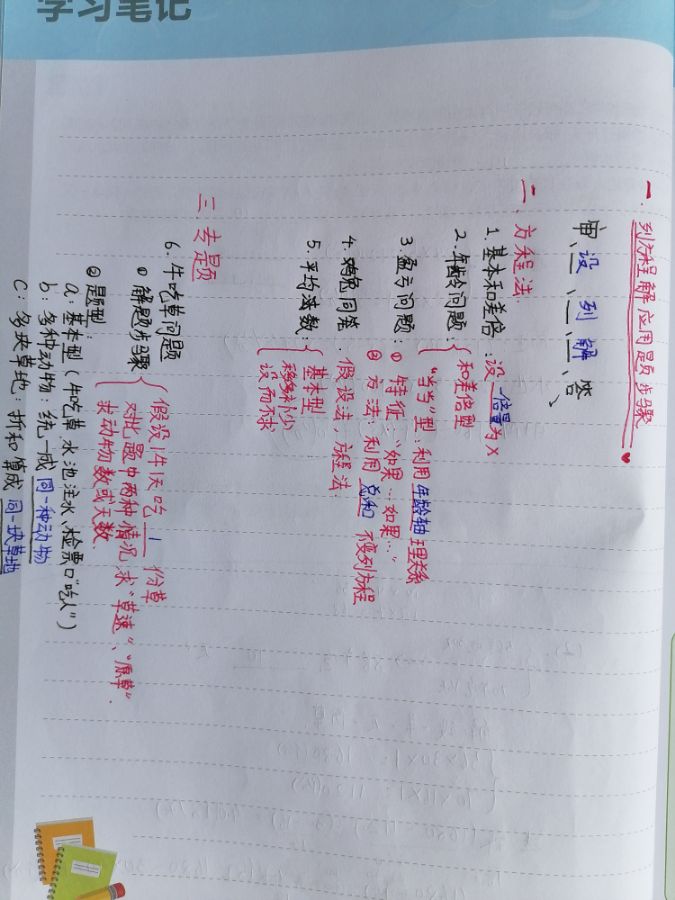 学习笔记
一、列方程解应用题步骤
审、设、列、解、答
二、方程法
1. 基本和差倍：设一倍量为X
2. 年龄问题：{和差倍型
"当当"型、利用年龄轴理关系
3. 盈亏问题：① 特征："如果…如果…"
② 方法：利用总和不变列方程
4. 鸡兔同笼：假设法、方程法
5. 平均数：{基本型
移多补少
设而不求
三、专题
6. 牛吃草问题
① 解题步骤{假设1牛1天吃1份草
对比题中两种情况,求"草速"、"原草".
求动物数或天数.
② 题型：
a: 基本型(牛吃草、水池注水、检票口"吃人")
b: 多种动物：统一成同一种动物
C: 多块草地：折和草成同一块草地